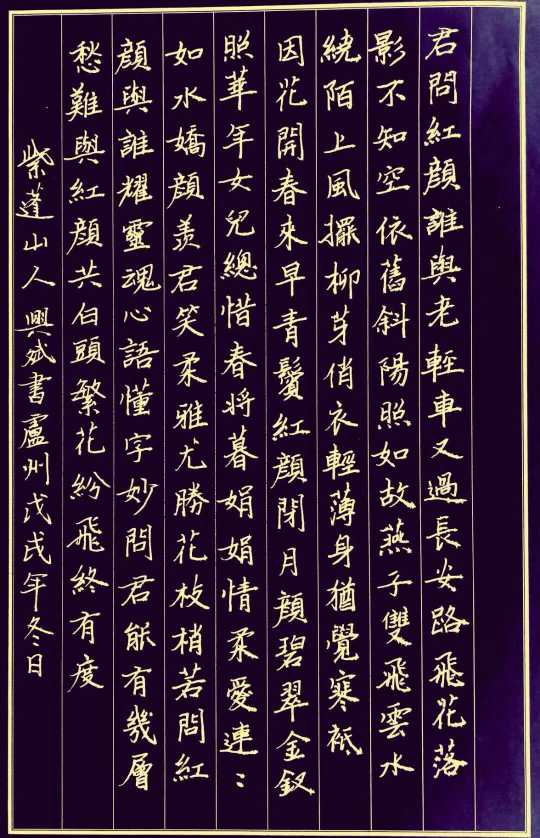 君問紅顔誰與老輕車又過長安路飛花落
影不知空依舊斜陽照如故燕子雙飛雲水
繞陌上風擺柳芽俏衣輕薄身猶覺寒祗
因花開春來早青鬢紅顔閉月顔碧翠金釵
照華年女兒總惜春将暮娟娟情柔愛連〻
如水嬌顔羨君笑柔雅尤勝花枝梢若問紅
顔與誰耀靈魂心語懂字妙問君能有幾層
愁難與紅顔共白頭繁花紛飛終有度
紫蓬山人興斌書廬州戊戌年冬日